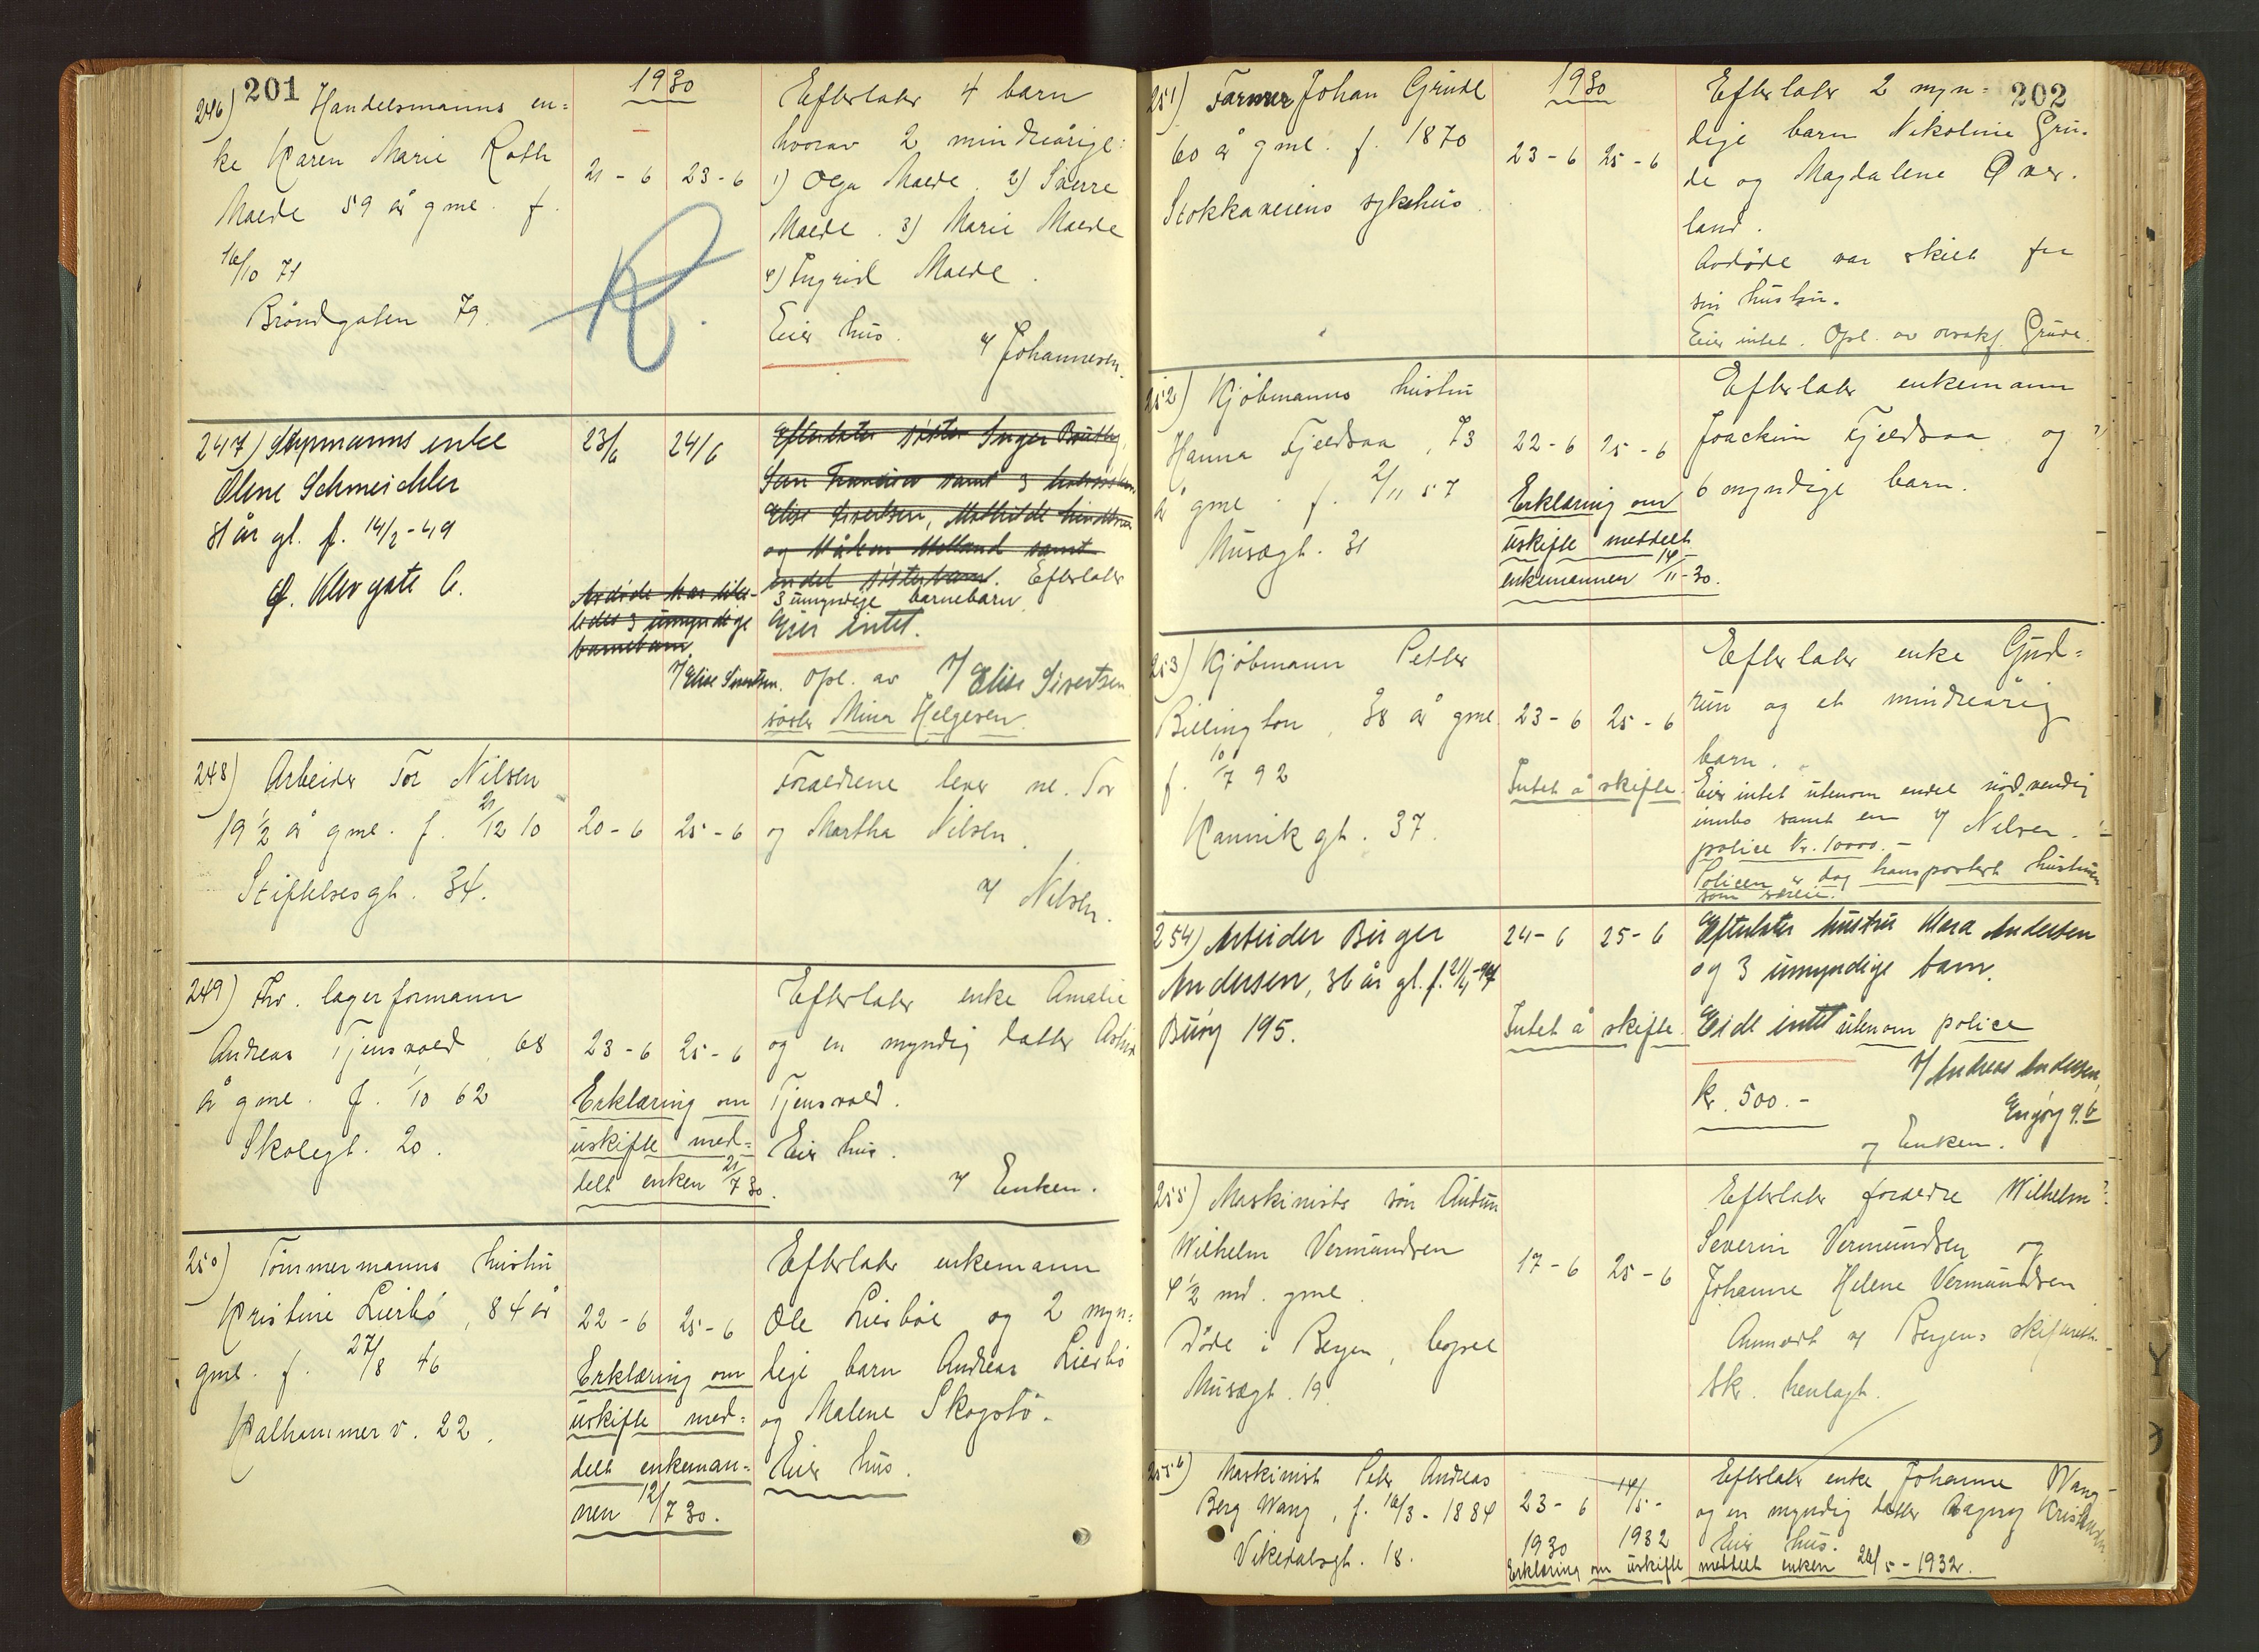 201
1930
246) Handelsmanns en-
ke Karen Marie Roth
Maede 59 år gml. f.
16/10 71
Bröndgaten 79.
21-6 23-6
Efterlater 4 barn
hvorav 2 mindreårige:
1) Olga Maede. 2) Sverre
Maede. 3) Marie Maede
4) Ingrid Maede.
Eier hus.
v/ Johannesen.
247) Skipmanns enke
Olene Schmeichler
81 år gl. f. 14/2-49
Ø. Klevgate 6.
23/6 24/6
Avdöde har
3 umyndige
barnebarn
v/ Elise Sivertsen.
Efterlater söster Inger
San Francisco samt 3
Elise Sivertsen, Mathilde
og Håkon Molland samt
endel sösterbarn. Efterlater
3 umyndige barnebarn
Eier intet.
Opl. av v/ Elise Sivertsen
söster Mina Helgesen
248) Arbeider Tor Nilsen
19 1/2 år gml. f. 21/12 10
Stiftelsesgt. 34.
20-6 25-6
Foreldrene lever nl. Tor
og Martha Nilsen.
v/ Nilsen.
249) Fhv. lagerformann
Andreas Tjensvold, 68
år gml. f. 1/10 62
Skolegt. 20.
23-6 25-6
Erklæring om
uskifte med-
delt enken 21/7 30.
Efterlater enke Amalie
og en myndig datter Astrid
Tjensvold.
Eier hus.
v/ Enken.
250) Tömmermanns hustru
Kristine Lierbö, 84 år
gml. f. 27/8 46
Kalhammerv. 22.
22-6 25-6
Erklæring om
uskifte med-
delt enkeman-
nen 12/7 30.
Efterlater enkemann
Ole Lierböe og 2 myn-
dige barn Andreas Lierbö
og Malene Skogstö.
Eier hus.
202
1930
251) Farmer Johan Grude
60 år gml. f. 1870
Stokkaveiens sykehus.
23-6 25-6
Efterlater 2 myn-
dige barn Nikoline Gru-
de og Magdalene Øver-
land.
Avdöde var skilt fra
sin hustru.
Eier intet. Opl. av Grude.
252) Kjöbmanns hustru
Hanna Fjeldsaa, 73
år gml. f. 2/11 57
Musægt. 31
22-6 25-6
Erklæring om
uskifte meddelt
enkemannen 14/11-30.
Efterlater enkemann
Joachim Fjeldsaa og
6 myndige barn.
253) Kjöbmann Petter
Billington, 38 år gml.
f. 10/7 92
Kannikgt. 37.
23-6 25-6
Intet å skifte.
Efterlater enke Gud-
run og et mindreårig
barn.
Eier intet utenom endel nödvendig
innbo samt en v/ Nilsen.
police kr. 10000.-
Policen er dog transportert hustruen
som særeie.
254) Arbeider Birger
Andersen, 36 år gl. f. 21/4-94
Buöy 195.
24-6 25-6
Intet å skifte.
Efterlater hustru Klara Andersen
og 3 umyndige barn.
Eide intet utenom police
kr. 500.-
v/ Andreas Andersen,
Engöy 9.b
og Enken.
255) Maskinists sön Audun
Wilhelm Vermundsen
4 1/2 md. gml.
Döde i Bergen, bopel
Musægt. 19.
17-6 25-6
Efterlater foreldre Wilhelm
Severin Vermundsen og
Johanne Helene Vermundsen
Anmeldt v/ Bergens skifterett.
Skr. henlagt.
255b) Maskinist Peter Andreas
Berg Wang, f. 16/3-1884
Vikedalsgt. 18.
23-6 14/5-
1930 1932
Efterlater enke Johanne Wang
og en myndig datter Dagny Kristensen
Eier hus.
Erklæring om uskifte meddelt enken 24/5-1932.